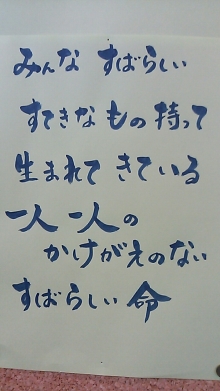 みんな すばらしい
すてきな もの 持って
生まれて きている
一人 一人の
かけがえのない
すばらしい 命